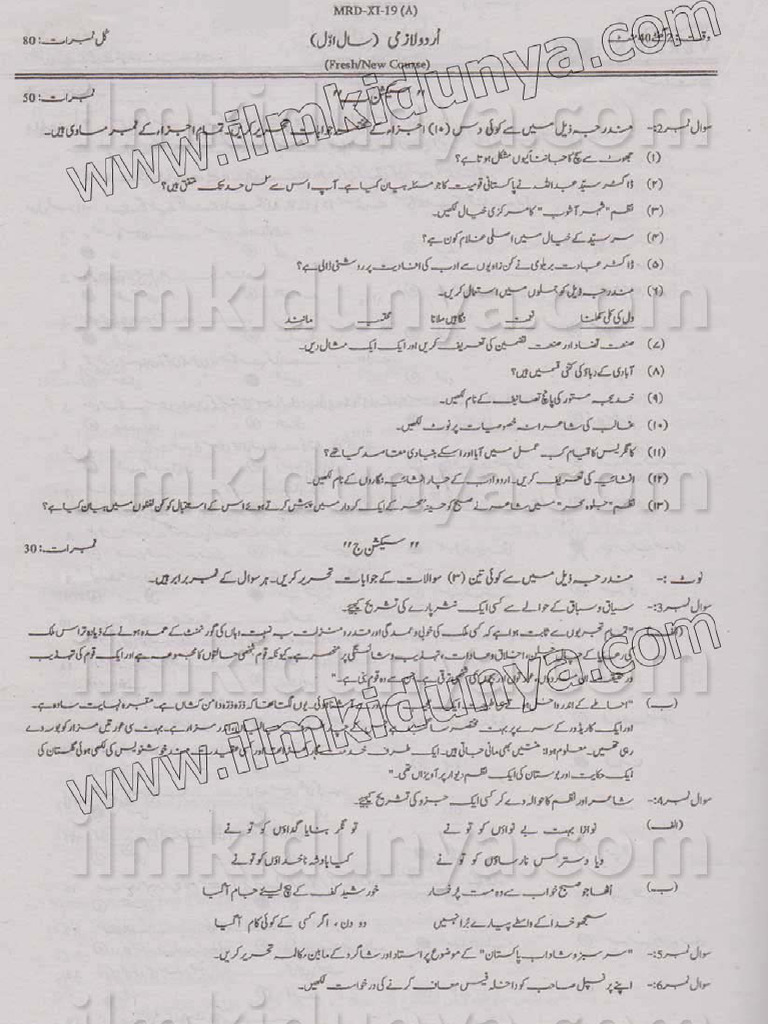 MRD-XI-19 (A)
وقت: 2 گھنٹے 40 منٹ
اُردو لازمی (سال اوّل)
کل نمبرات: 80
(Fresh/New Course)
"سیکشن ب"
نمبرات: 50
سوال نمبر 2:- مندرجہ ذیل میں سے کوئی دس (۱۰) اجزاء کے جوابات تحریر کریں۔ تمام اجزاء کے نمبر مساوی ہیں۔
(۱) جھوٹ سے سچ کا جاننا کیوں مشکل ہوتا ہے؟
(۲) ڈاکٹر سیّد عبداللہ نے پاکستانی قومیت کا جو مسئلہ بیان کیا ہے۔ آپ اس سے کس حد تک متفق ہیں؟
(۳) نظم "شہر آشوب" کا مرکزی خیال لکھیں۔
(۴) سرسیّد کے خیال میں اصلی غلام کون ہے؟
(۵) ڈاکٹر عبادت بریلوی نے کن زاویوں سے ادب کی افادیت پر روشنی ڈالی ہے؟
(۶) مندرجہ ذیل کو جملوں میں استعمال کریں۔
دل کی کلی کھلنا نعت نگاہیں ملانا مکتب مانند
(۷) صنعت تضاد اور صنعت تضمین کی تعریف کریں اور ایک ایک مثال دیں۔
(۸) آبادی کے دباؤ کی کتنی قسمیں ہیں؟
(۹) خدیجہ مستور کی پانچ تصانیف کے نام لکھیں۔
(۱۰) غالب کی شاعرانہ خصوصیات پر نوٹ لکھیں۔
(۱۱) کانگریس کا قیام کب عمل میں آیا اور اسکے بنیادی مقاصد کیا تھے؟
(۱۲) انشائیہ کی تعریف کریں۔ اردو ادب کے چار انشائیہ نگاروں کے نام لکھیں۔
(۱۳) نظم "جلوہ سحر" میں شاعر نے صبح کو حسینہ سحر کے ایک کردار میں پیش کرتے ہوئے اس کے استقبال کو کن لفظوں میں بیان کیا ہے؟
"سیکشن ج"
نمبرات: 30
نوٹ :- مندرجہ ذیل میں سے کوئی تین (۳) سوالات کے جوابات تحریر کریں۔ ہر سوال کے نمبر برابر ہیں۔
سوال نمبر 3:- سیاق و سباق کے حوالے سے کسی ایک نثر پارے کی تشریح کیجیے۔
(الف) "تمام تجربوں سے ثابت ہوا ہے کہ کسی ملک کی خوبی و عمدگی اور قدر و منزلت بہ نسبت وہاں کی گورنمنٹ کے عمدہ ہونے کے زیادہ تر اس ملک
کی رعایا کے چال چلن، اخلاق و عادات، تہذیب و شائستگی پر منحصر ہے۔ کیونکہ قوم شخصی حالتوں کا مجموعہ ہے اور ایک قوم کی تہذیب
درحقیقت ان مردوں، عورتوں اور بچوں کی شخصی ترقی ہے۔ جن سے وہ قوم بنی ہے۔"
(ب) "احاطے کے اندر داخل ہوئی۔ یوں لگتا تھا کہ ذرّہ ذرّہ دامن کشاں ہے۔ مقبرہ نہایت سادہ ہے۔
اور ایک کاریڈور کے سرے پر بہت مختصر سا مزار ہے۔ بہت سی عورتیں مزار کو بوسہ دے
رہی تھیں۔ معلوم ہوا منتیں بھی مانی جاتی ہیں۔ ایک طرف خوشنویس کی لکھی ہوئی گلستان کی
ایک حکایت اور بوستان کی ایک نظم دیوار پر آویزاں تھی۔"
سوال نمبر 4:- شاعر اور نظم کا حوالہ دے کر کسی ایک جزو کی تشریح کیجیے۔
(الف) نوازا بہت بے نواؤں کو تو نے تونگر بنایا گداؤں کو تو نے
دیا دسترس نارساؤں کو تو نے کیا بادشہ ناخداؤں کو تو نے
(ب) اٹھا جو صبح خواب سے وہ مست پُر خمار خورشید کف کے بیچ لیئے جام آ گیا
سمجھو خدا کے واسطے پیارے بُرا نہیں دو دن، اگر کسی کے کوئی کام آ گیا
سوال نمبر 5:- "سرسبز و شاداب پاکستان" کے موضوع پر استاد اور شاگرد کے مابین مکالمہ تحریر کریں۔
سوال نمبر 6:- اپنے پرنسپل صاحب کو داخلہ فیس معاف کرنے کی درخواست لکھیں۔
www.ilmkidunya.com
ilmkidunya.com
ilmkidunya.com
www.ilmkidunya.com
ilmkidunya.com
ilmkidunya.com